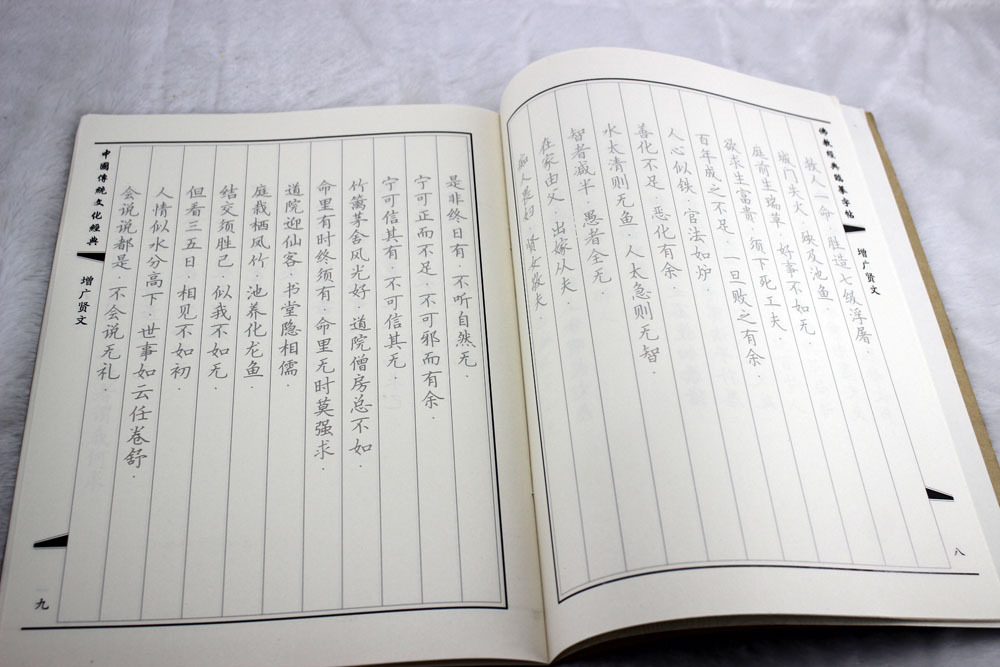 佛教經典臨摹字帖
增广贤文
八
救人一命·胜造七级浮屠·
城门失火·殃及池鱼·
庭前生瑞草·好事不如无·
欲求生富贵·须下死工夫·
百年成之不足·一旦败之有余·
人心似铁·官法如炉·
善化不足·恶化有余·
水太清则无鱼·人太急则无智·
智者减半·愚者全无·
在家由父·出嫁从夫·
痴人畏妇·贤女敬夫·
是非终日有·不听自然无·
宁可正而不足·不可邪而有余·
宁可信其有·不可信其无·
竹篱茅舍风光好·道院僧房总不如·
命里有时终须有·命里无时莫强求·
道院迎仙客·书堂隐相儒·
庭栽栖凤竹·池养化龙鱼
结交须胜己·似我不如无·
但看三五日·相见不如初
人情似水分高下·世事如云任卷舒·
会说说都是·不会说无礼·
中國傳統文化經典
增广贤文
九